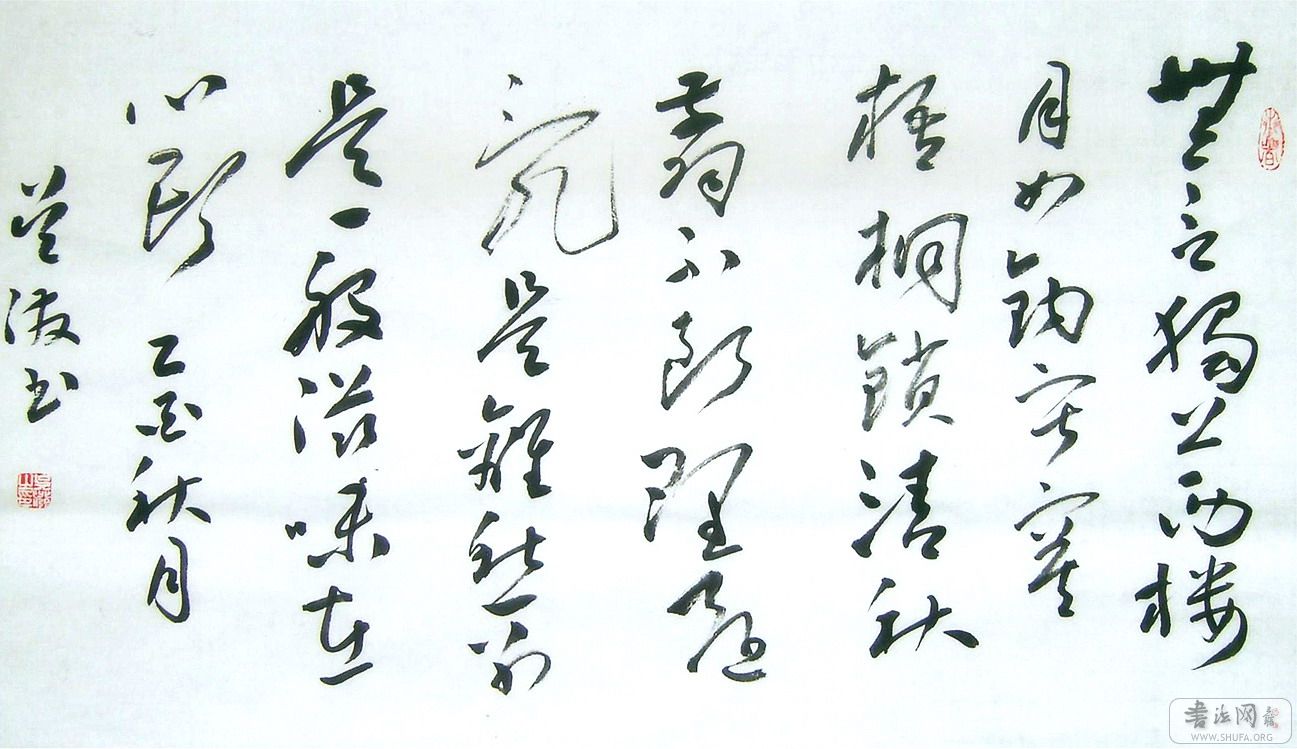 無言獨上西楼
月如鈎寂寞
梧桐鎖清秋
翦不断理還
亂是離愁别
是一般滋味在
心頭 乙酉秋月
書
書法网
WWW.SHUFA.ORG